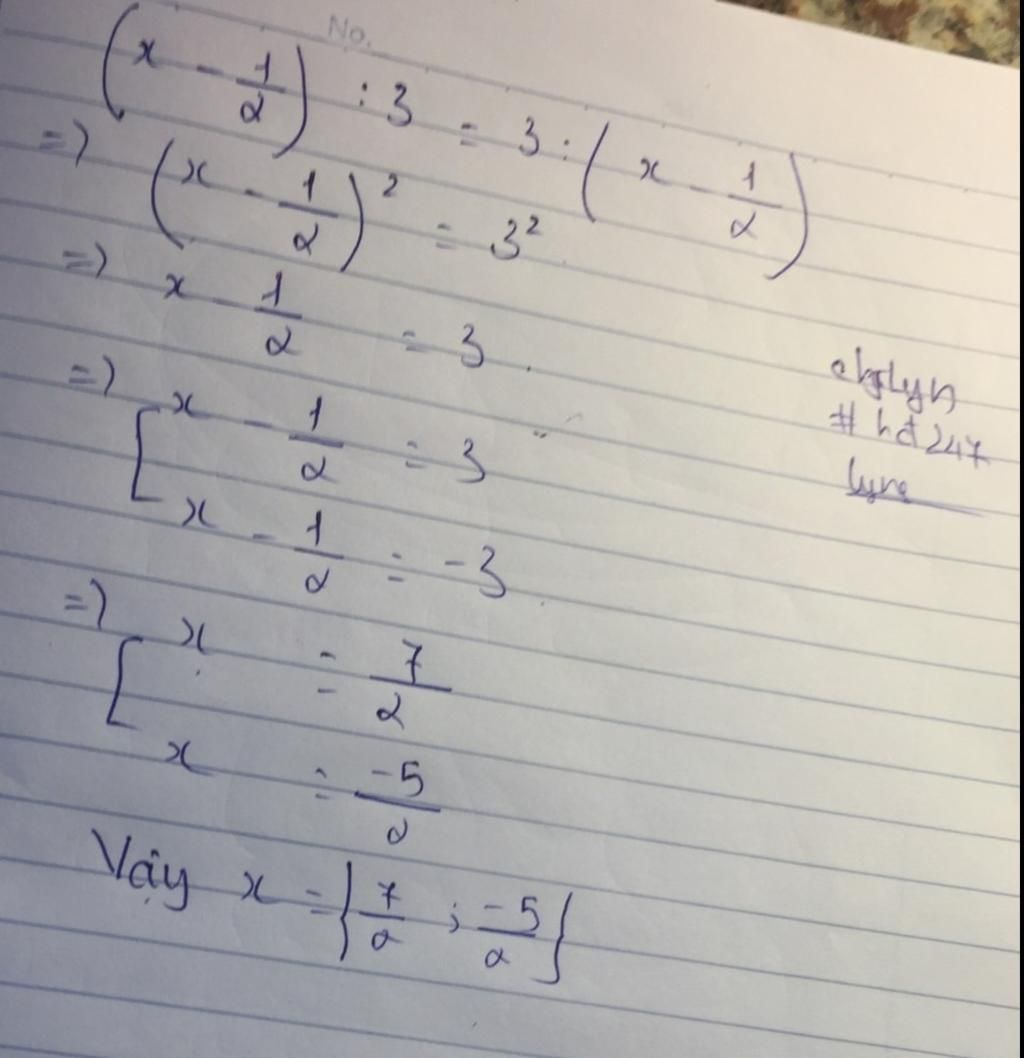 No.
(x - 1/2) : 3 = 3 : (x - 1/2)
=> (x - 1/2)² = 3²
=> x - 1/2 = 3
=> [ x - 1/2 = 3
x - 1/2 = -3
=> [ x = 7/2
x = -5/2
Vậy x = { 7/2 ; -5/2 }
# hđ247
lyne